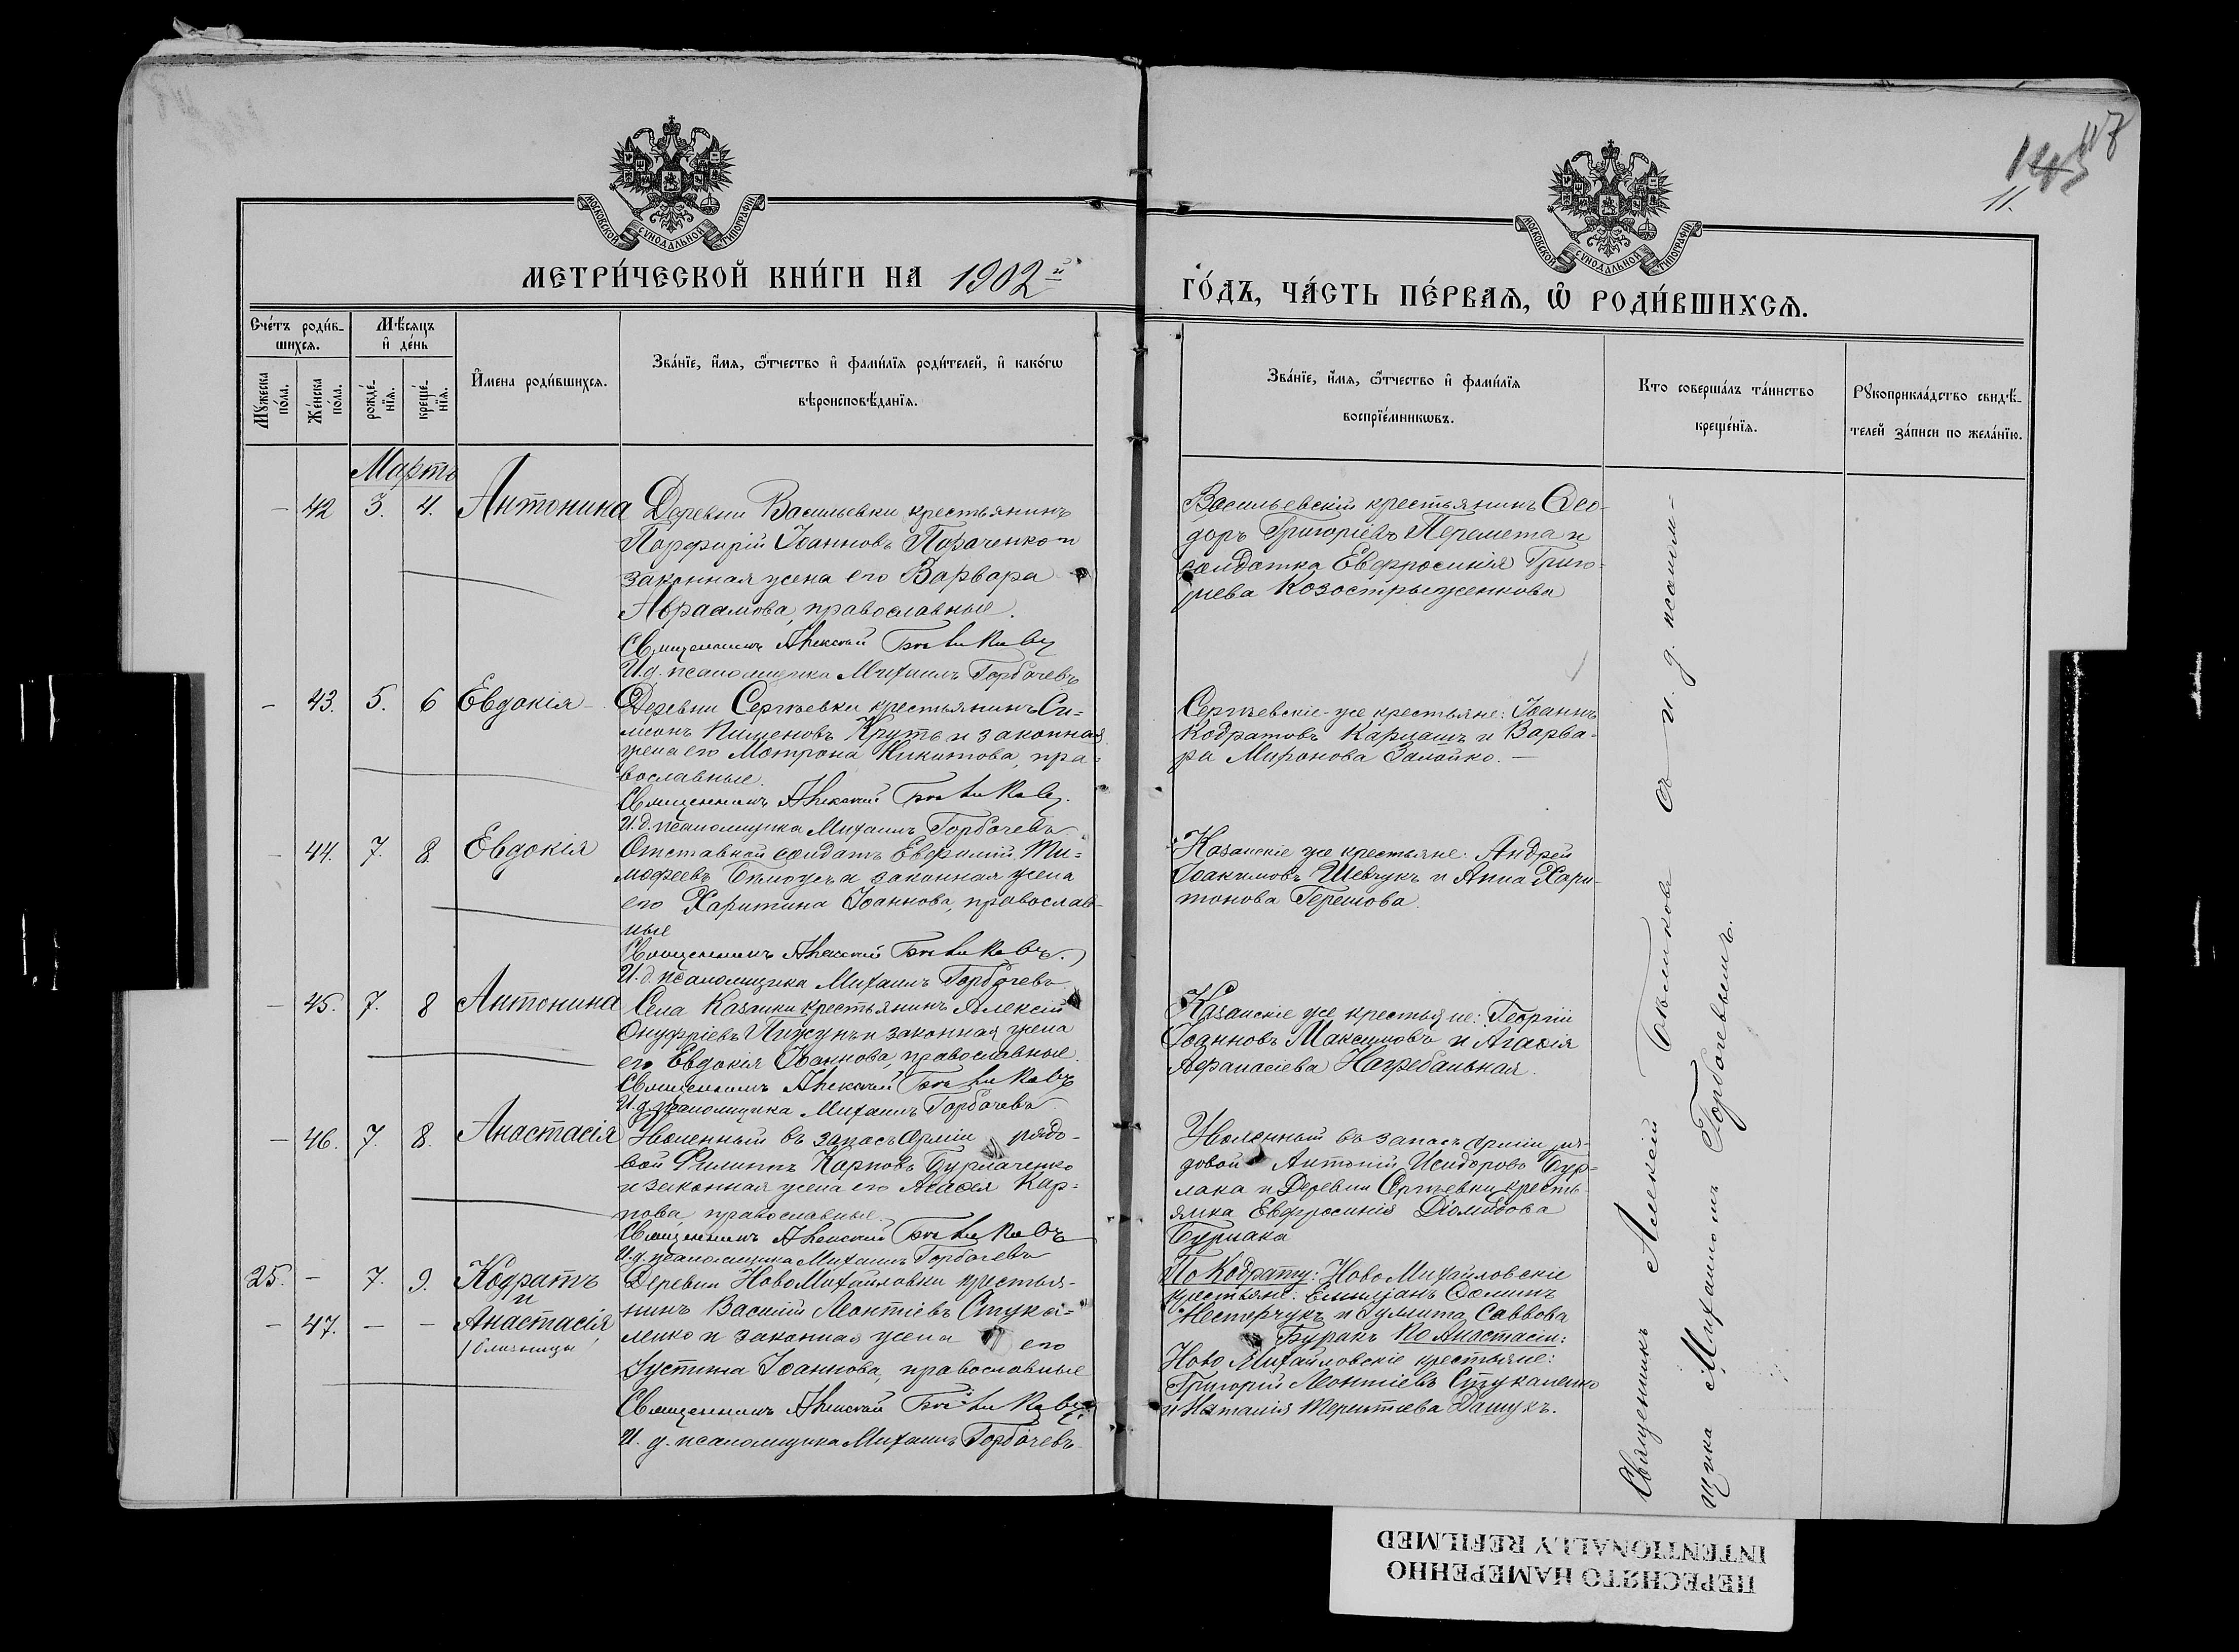 143
117
11.
МОСКОВСКОЙ СѴНОДАЛЬНОЙ ТИПОГРАФІИ
МОСКОВСКОЙ СѴНОДАЛЬНОЙ ТИПОГРАФІИ
МЕТРИ́ЧЕСКОЙ КНИ́ГИ НА 1902й
ГО́ДЪ, ЧА́СТЬ ПЕ́РВАѦ, Ѽ РОДИ́ВШИХСѦ.
Сче́тъ роди́в-
шихсѧ.
Мѣ́сѧцъ
и҆ де́нь
Мꙋ́жеска
по́ла.
Же́нска
по́ла.
рожде́-
нїѧ.
креще́-
нїѧ.
И҆мена роди́вшихсѧ.
Зва́нїе, и҆́мѧ, ѻ҆́тчество и҆ фами́лїѧ роди́телей, и҆ како́гѡ
вѣроисповѣ́данїѧ.
Зва́нїе, и҆́мѧ, ѻ҆́тчество и҆ фами́лїѧ
воспрїе́мникѡвъ.
Кто соверша́лъ та́инство
креще́нїѧ.
Рꙋкоприкла́дство свидѣ́-
телей за́писи по жела́нїю.
Мартъ
— 42 3. 4. Антонина
Деревни Васильевки крестьянинъ
Порфирій Іоанновъ и
законная жена его Варвара
Авраамова, православные.
Священникъ Алексій
И.д. псаломщика Михаилъ Горбачевъ
Васильевскій крестьянинъ Ѳео-
доръ Григоріевъ Перемета и
солдатка Евфросинія Григо-
ріева Козостриженкова
— 43. 5. 6 Евдокія
Деревни Сергѣевки крестьянинъ Си-
меонъ Пименовъ Круть и законная
жена его Мотрона Никитова, пра-
вославные.
Священникъ Алексій
И.д. псаломщика Михаилъ Горбачевъ
Сергѣевскіе-же крестьяне: Іоаннъ
Кодратовъ Карпашъ и Варва-
ра Миронова Залойко. —
— 44. 7. 8. Евдокія
Отставной солдатъ Евфимій Ти-
мофеевъ и законная жена
его Харитина Іоаннова, православ-
ные
Священникъ Алексій
И.д. псаломщика Михаилъ Горбачевъ
Казанскіе же крестьяне: Андрей
Іоакимовъ Шевчукъ и Анна Хари-
тонова Герешова.
— 45. 7. 8 Антонина
Села Казанки крестьянинъ Алексій
Онуфріевъ и законная жена
его Евдокія Іоаннова, православные.
Священникъ Алексій
И.д. псаломщика Михаилъ Горбачевъ
Казанскіе же крестьяне: Георгій
Іоанновъ Максимовъ и Агафія
Афанасіева Нагребальная.
— 46. 7. 8. Анастасія
Уволенный въ запасъ арміи рядо-
вой Филиппъ Карповъ Бурлаченко
и законная жена его Агафія Кар-
пова, православные.
Священникъ Алексій
И.д. псаломщика Михаилъ Горбачевъ
Уволенный въ запасъ арміи ря-
довой Антоній Исидоровъ Бур-
лака и Деревни Сергѣевки кресть-
янка Евфросинія Діомидова
Бурлака
25. — 7. 9. Кодратъ
и
— 47. — — Анастасія
/близнецы/
Деревни НовоМихайловки крестья-
нинъ Василій Леонтіевъ Стука-
ленко и законная жена его
Іустина Іоаннова, православные
Священникъ Алексій
И. д. псаломщика Михаилъ Горбачевъ
По Кодрату: НовоМихайловскіе
крестьяне: Емиліанъ Ѳоминъ
Нестерчукъ и Іулита Саввова
Буракъ По Анастасіи:
Ново Михайловскіе крестьяне:
Григорій Леонтіевъ Стукаленко
и Наталія Терентіева Дашукъ.
Священникъ Алексій съ и. д. псалом-
щика Михаиломъ Горбачевымъ.
ПЕРЕСНЯТО НАМЕРЕННО
INTENTIONALLY REFILMED